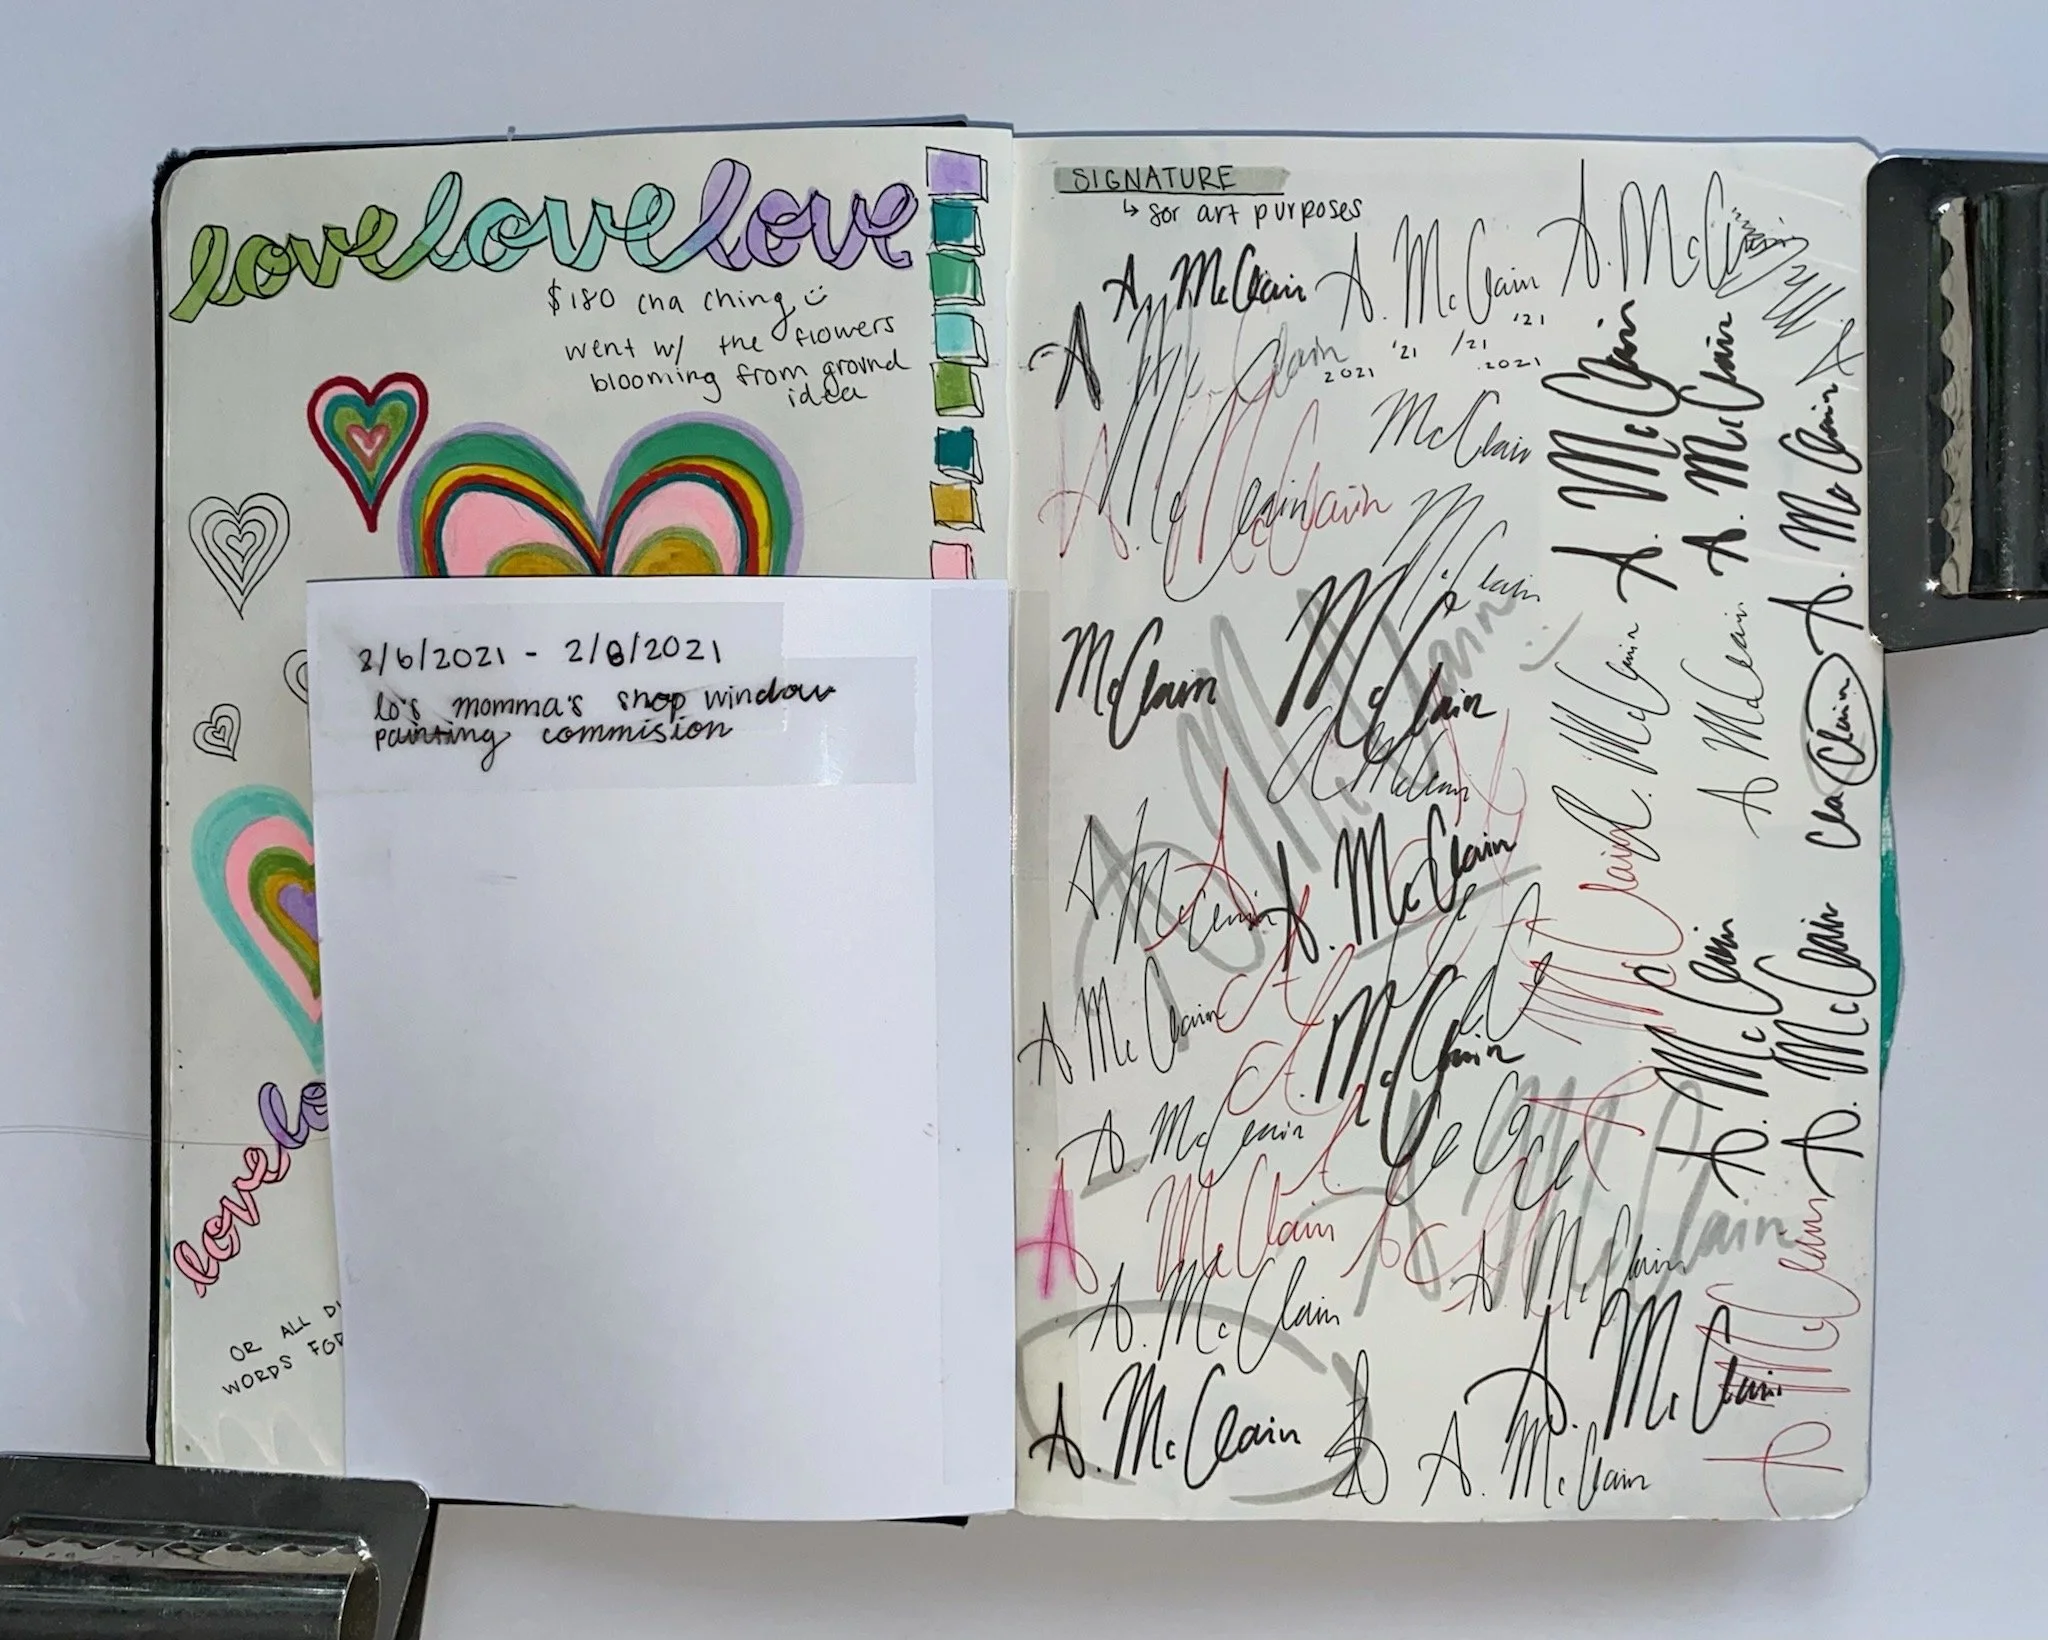 love love love
$180 cha ching
went w/ the flowers
blooming from ground
idea
2/6/2021 - 2/8/2021
lo's momma's shop window
painting commision
love lo
OR ALL DI
WORDS FOR
SIGNATURE
↳ for art purposes
A. McClain
A. McClain
A. McC
'21
'21
/21
2021
2021
A
McClain
McClain
A. McClain
McClain
McClain
McClain
McClain
A. McClain
A McClain
A. McClain
A. McClain
A McClain
McClain
A. McClain
A
McClain
A. McClain
A. McClain
A. McClain
A. McClain
A. McClain
A. McClain
A. McClain
A. McClain
A
McClain
A McClain
Cla Clain
McClain
A. McClain
A. McClain
A McClain